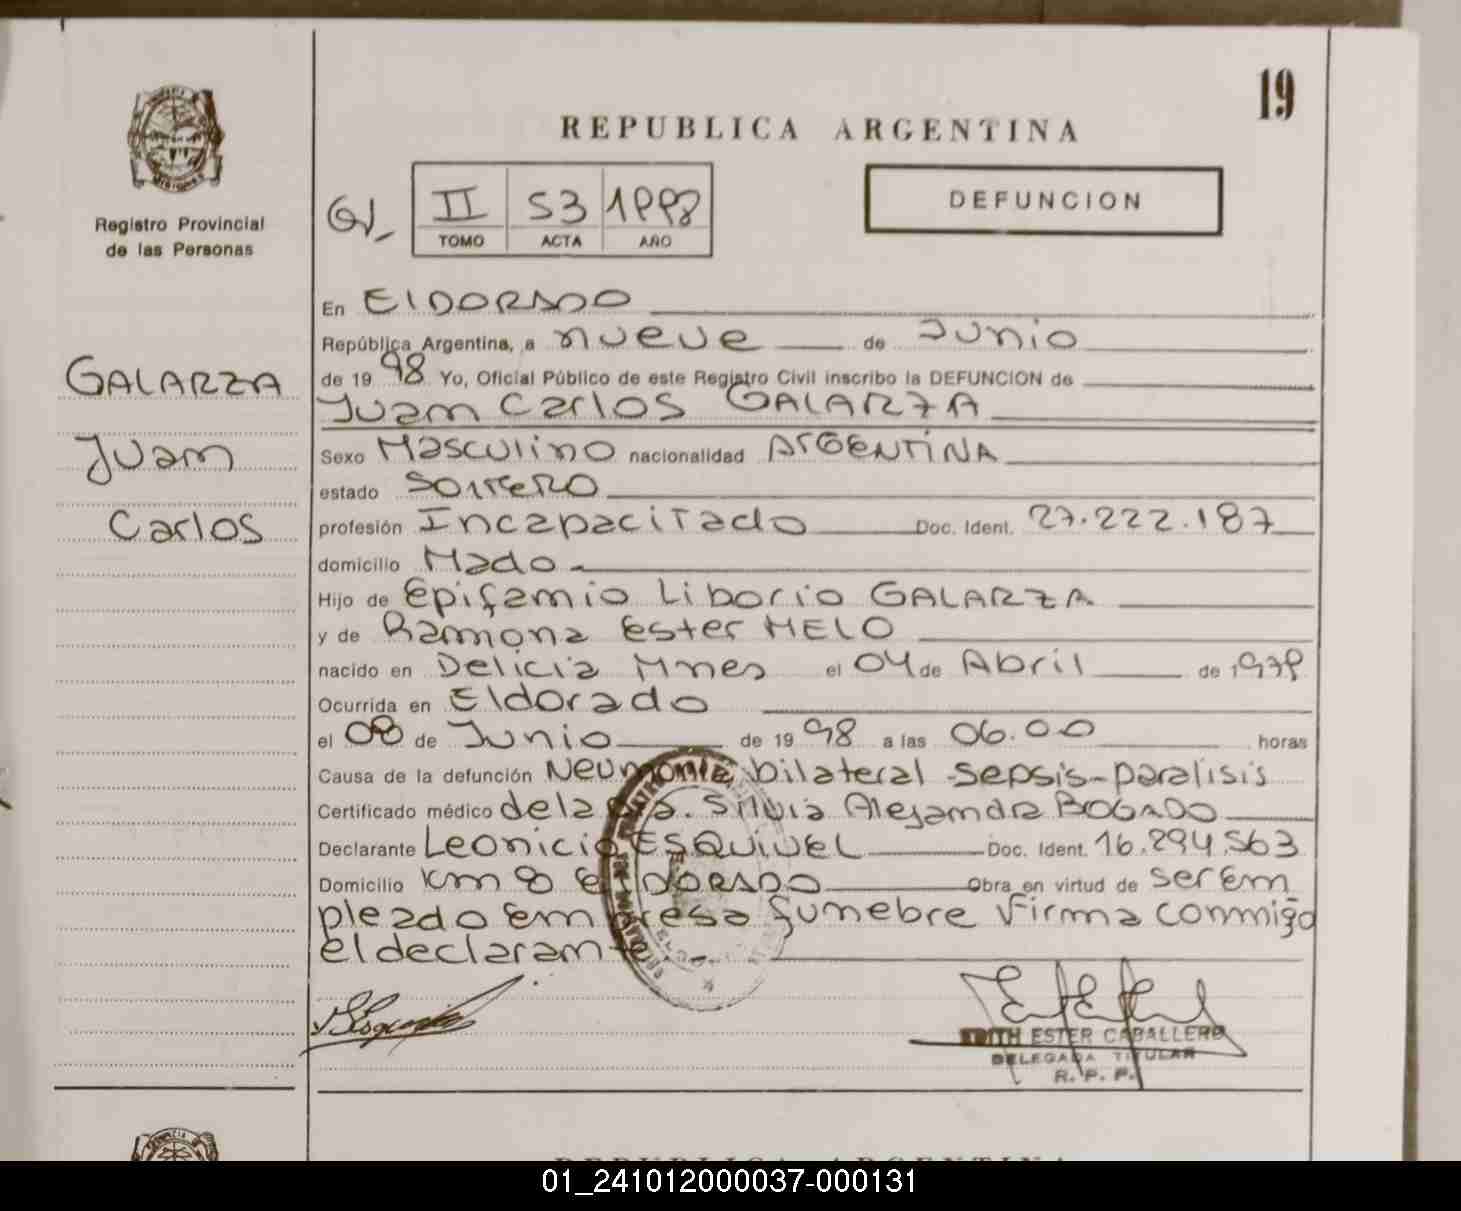 19
REPUBLICA ARGENTINA
DEFUNCION
II S3 1998
TOMO ACTA AÑO
Registro Provincial
de las Personas
GALARZA
Juan
Carlos
En ElDORADO
República Argentina, a nueve de Junio
de 1998 Yo, Oficial Público de este Registro Civil inscribo la DEFUNCION de
Juan Carlos GALARZA
Sexo Masculino nacionalidad ARGENTINA
estado Soltero
profesión Incapacitado Doc. Ident. 27.222.187
domicilio Mado
Hijo de Epifanio Liborio GALARZA
y de Ramona Ester MELO
nacido en Delicia Mnes el 04 de Abril de
Ocurrida en Eldorado
el 08 de Junio de 1998 a las 06.00 horas
Causa de la defunción Neumonia bilateral - sepsis - paralisis
Certificado médico de la Dra. Silvia Alejandra BOGADO
Declarante Leonicio ESQUIVEL Doc. Ident. 16.294.563
Domicilio Km 8 ElDORADO Obra en virtud de ser em
pleado empresa funebre Firma conmigo
el declarante.-
EDITH ESTER CABALLERO
DELEGADA TITULAR
R. P. P.
REPUBLICA ARGENTINA
01_241012000037-000131